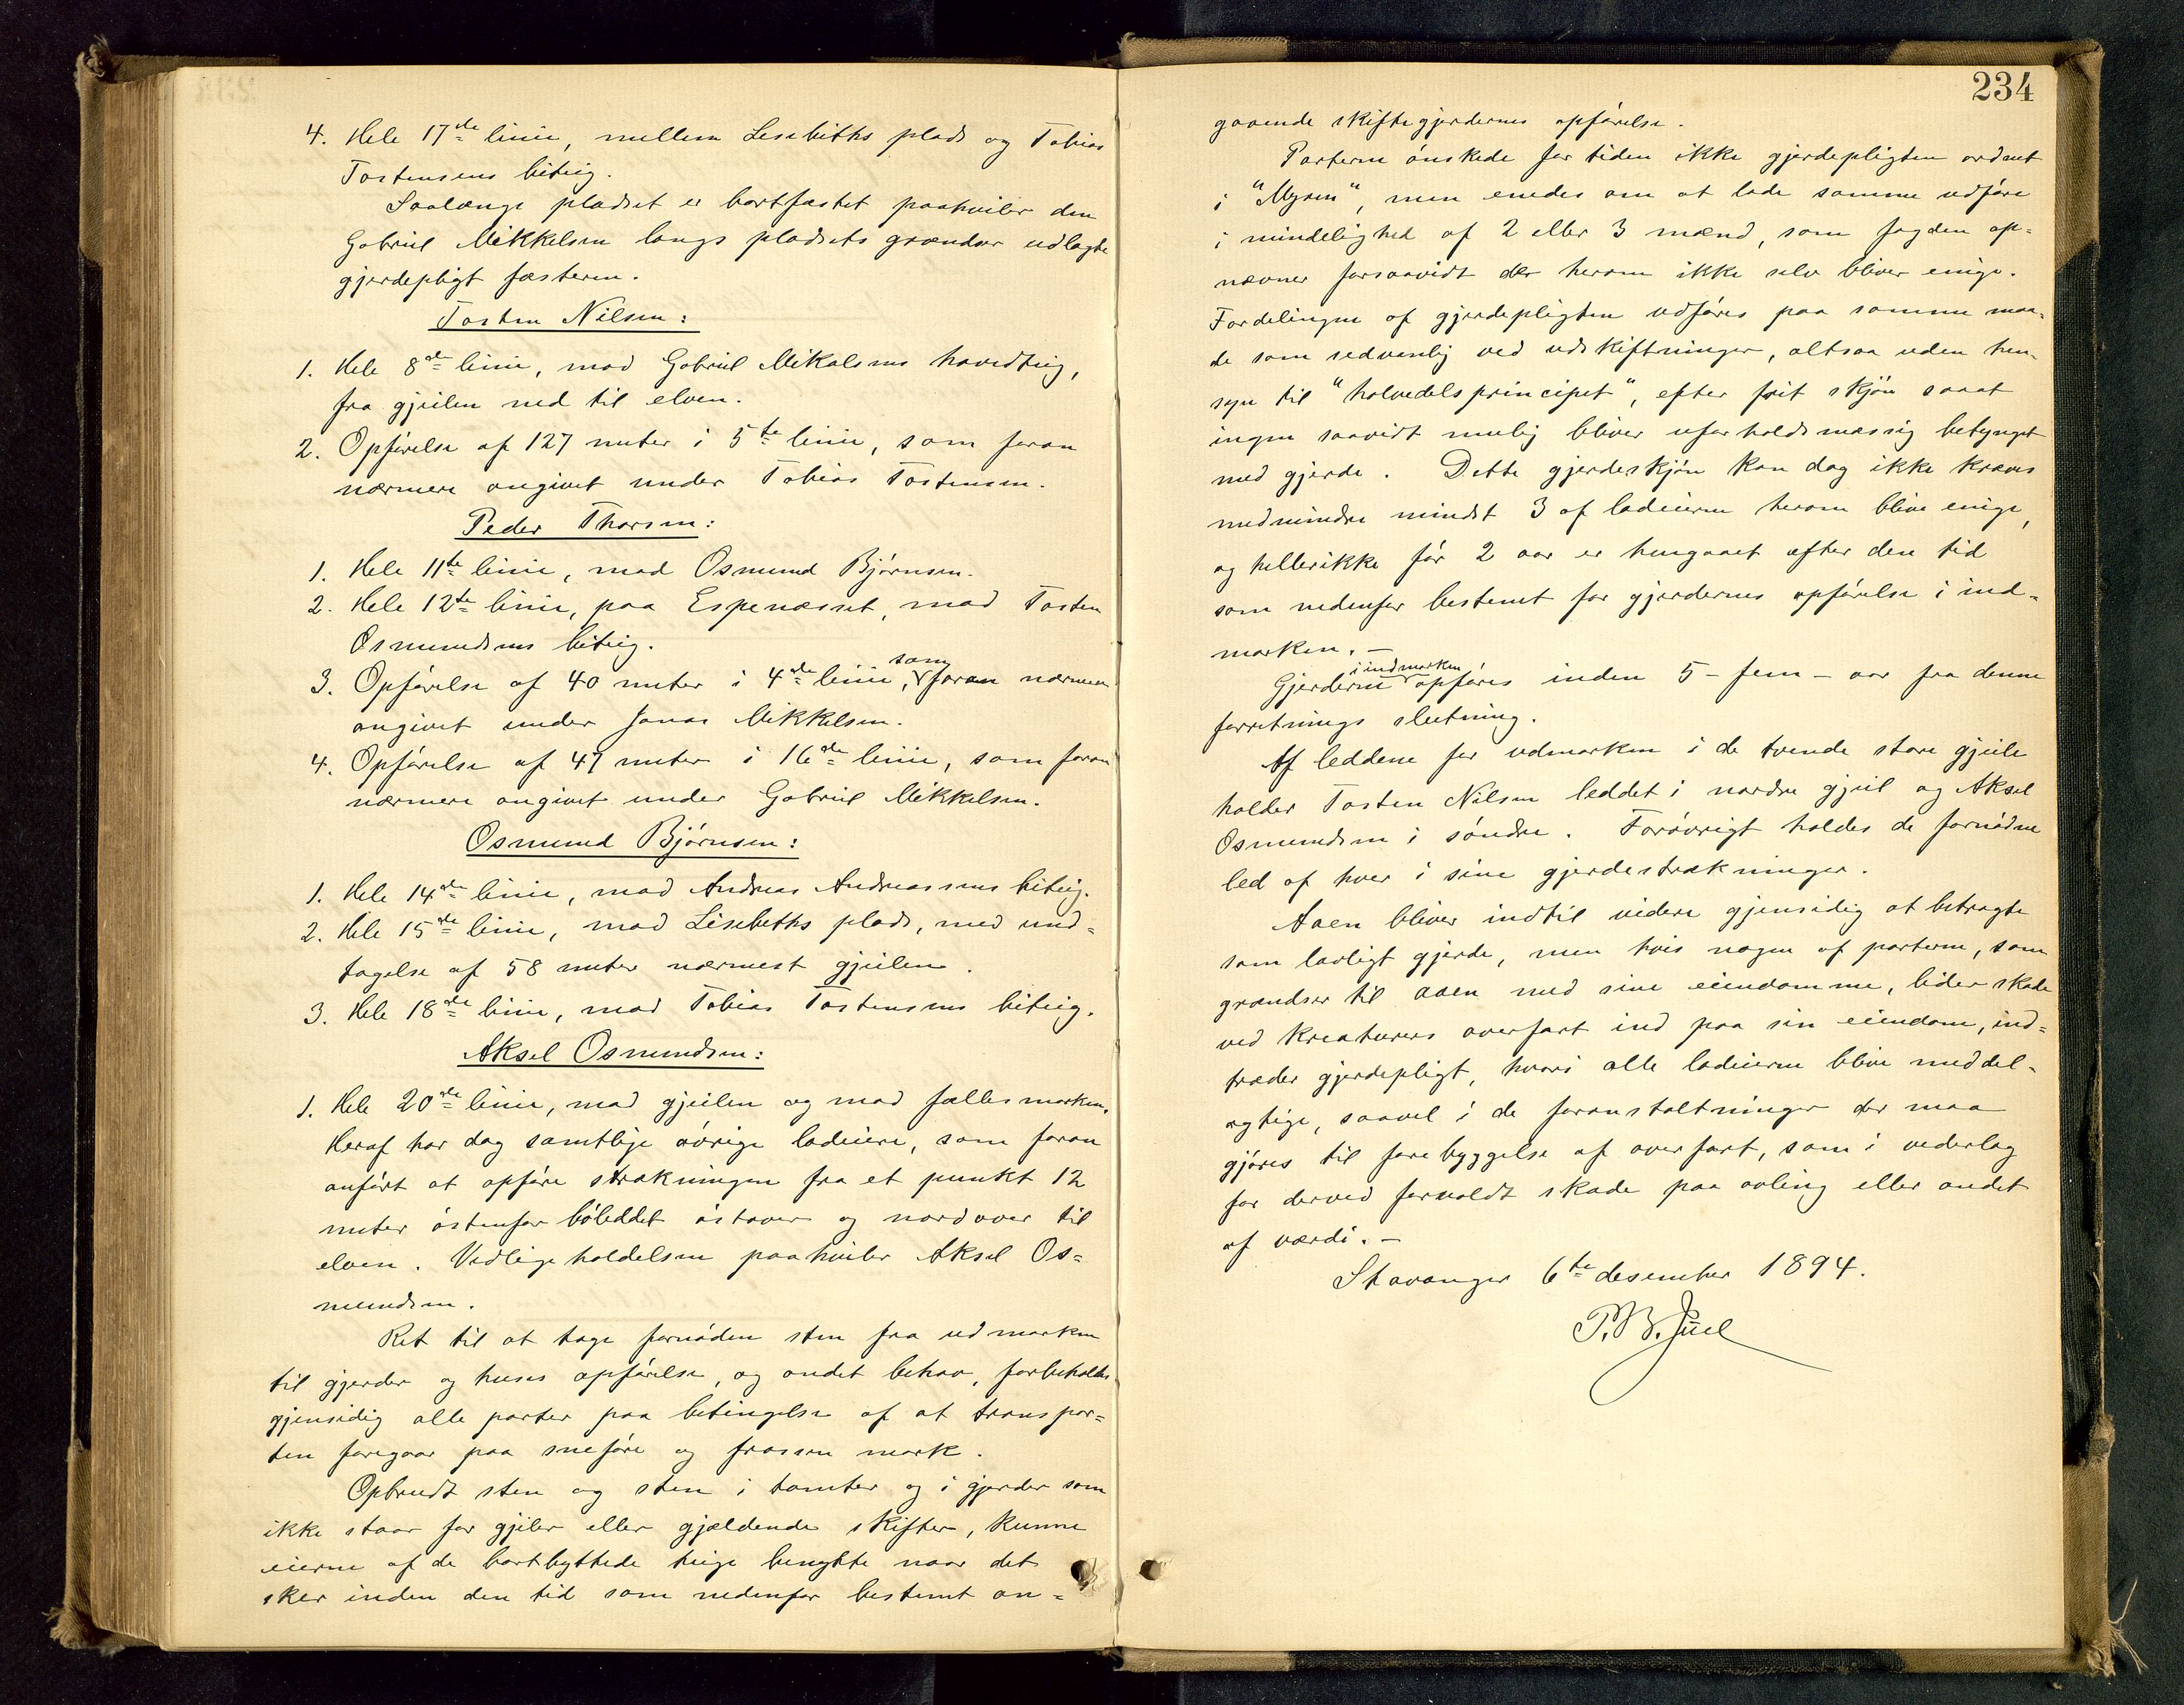 4. Hele 17de linie, mellem Lisebeths plads og Tobias
Tostensens biteig.
Saalænge pladset er bortfæstet paahviler den
Gabriel Mikkelsen langs pladsets grændser udlagte
gjerdepligt fæsteren.
Tosten Nilsen:
1. Hele 8de linie, mod Gabriel Mikalsens hovedteig,
fra gjeilen ned til elven.
2. Opførelse af 127 meter i 5te linie, som foran
nærmere angivet under Tobias Tostensen.
Peder Thorsen:
1. Hele 11te linie, mod Osmund Bjørnsen.
2. Hele 12te linie, paa Espenæsset, mod Tosten
Osmundsens biteig.
3. Opførelse af 40 meter i 4de linie, som foran nærmere
angivet under Jonas Mikkelsen.
4. Opførelse af 47 meter i 16de linie, som foran
nærmere angivet under Gabriel Mikkelsen.
Osmund Bjørnsen:
1. Hele 14de linie, mod Andreas Andreassens biteig.
2. Hele 15de linie, mod Lisebeths plads, med und=
tagelse af 58 meter nærmest gjeilen.
3. Hele 18de linie, mod Tobias Tostensens biteig.
Aksel Osmundsen:
1. Hele 20de linie, mod gjeilen og mod fællesmarken.
Heraf har dog samtlige øvrige lodeiere, som foran
anført at opføre strækningen fra et punkt 12
meter østenfor bøleddet østover og nordover til
elven. Vedligeholdelsen paahviler Aksel Os=
mundsen.
Ret til at tage fornøden sten fra udmarken
til gjerder og huses opførelse, og andet behov, forbeholdes
gjensidig alle parter paa betingelse af at transpor=
ten foregaar paa sneføre og frossen mark.
Opbrudt sten og sten i tomter og i gjerder som
ikke staar for gjeiler eller gjældende skifter, kunne
eierne af de bortbyttede teige benytte naar det
sker inden den tid som nedenfor bestemt an=
234
gaaende skiftegjerdernes opførelse.
Parterne ønskede for tiden ikke gjerdepligten ordnet
i "Myren", men enedes om at lade samme udføre
i mindelighed af 2 eller 3 mænd, som fogden op=
nævner forsaavidt der herom ikke selv bliver enige.
Fordelingen af gjerdepligten udføres paa samme maa=
de som sedvanlig ved udskiftninger, altsaa uden hen=
syn til "halvedelsprincipet", efter frit skjøn saaat
ingen saavidt mulig bliver uforholdsmæssig betynget
med gjerde. Dette gjerdeskjøn kan dog ikke kræves
medmindre mindst 3 af lodeierne herom blive enige,
og hellerikke før 2 aar er hengaaet efter den tid
som nedenfor bestemt for gjerdernes opførelse i ind=
marken. -
Gjerderne i indmarken opføres inden 5 - fem - aar fra denne
forretnings slutning.
Af leddene for udmarken i de tvende store gjeile
holder Tosten Nilsen leddet i nordre gjeil og Aksel
Osmundsen i søndre. Forøvrigt holdes de fornødne
led af hver i sine gjerdestrækninger.
Aaen bliver indtil videre gjensidig at betragte
som lovligt gjerde, men hvis nogen af parterne, som
grændser til aaen med sine eiendomme, lider skade
ved kreaturers overfart ind paa sin eiendom, ind=
træder gjerdepligt, hvori alle lodeierne blive meddel=
agtige, saavel i de foranstaltninger der maa
gjøres til forebyggelse af overfart, som i vederlag
for derved forvoldt skade paa avling eller andet
af værdi. -
Stavanger 6te desember 1894.
P. B. Juel